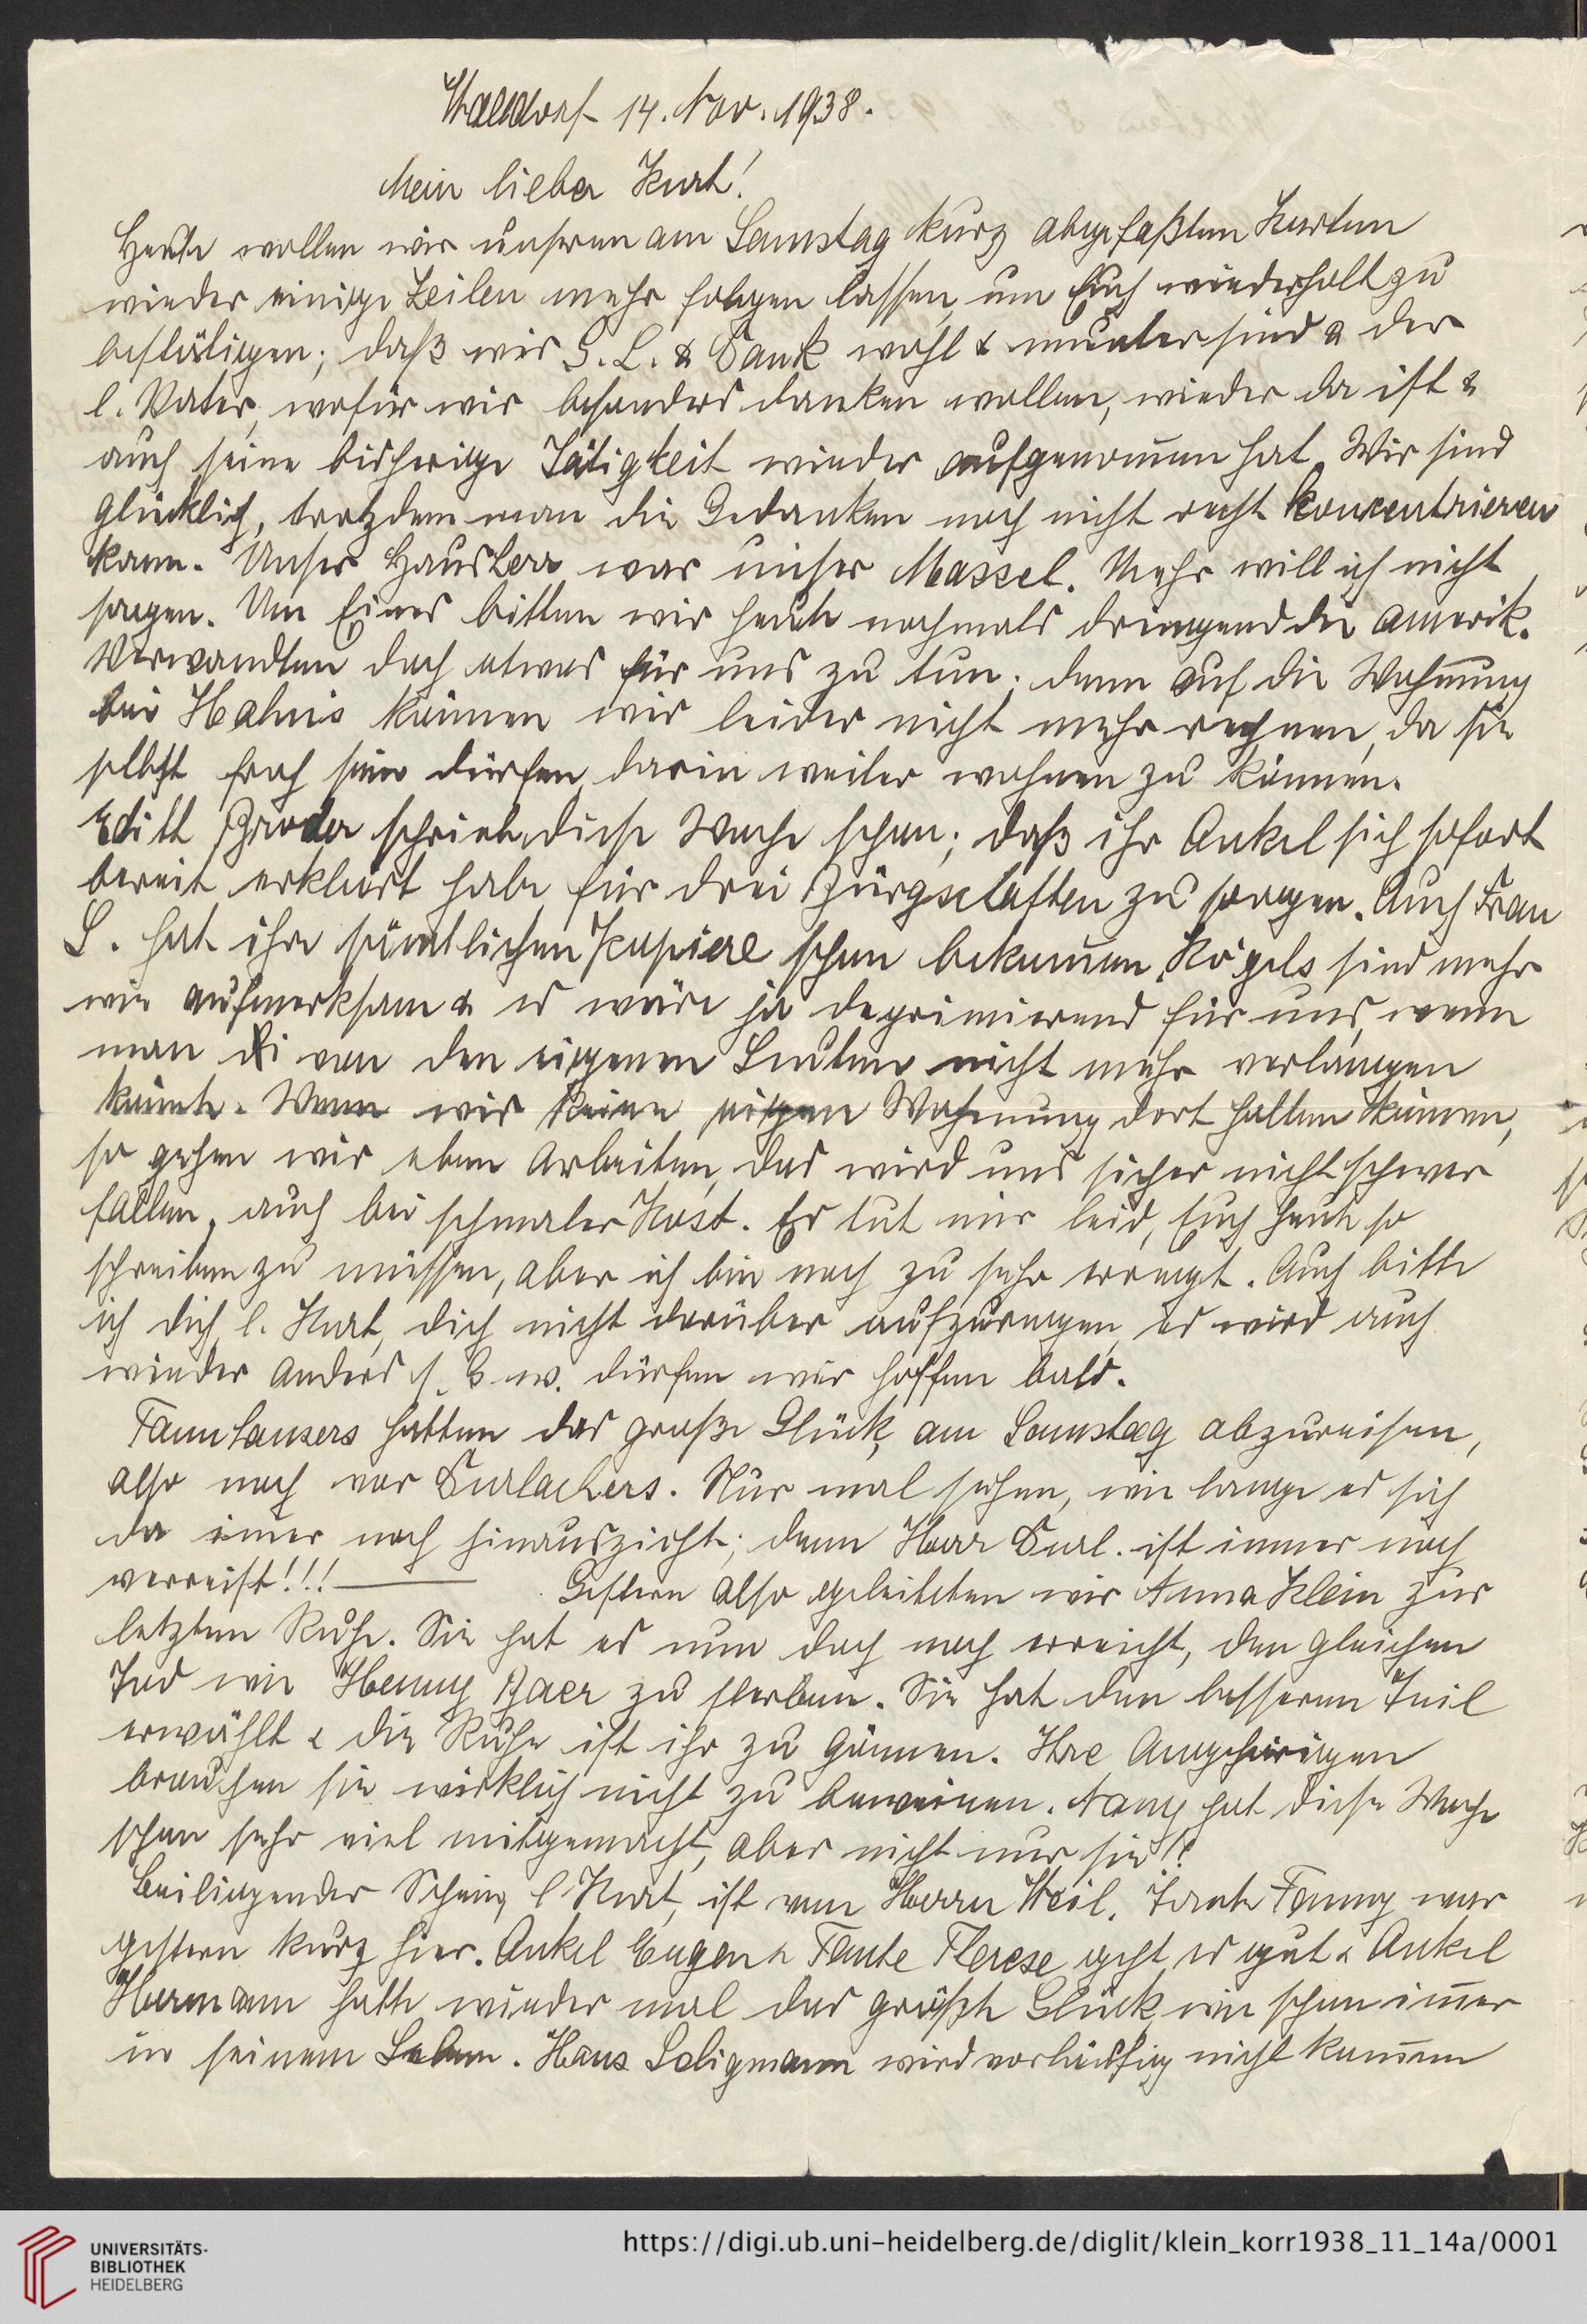 Walldorf 14. Nov. 1938.
Mein lieber Kurt!
Heute wollen wir unseren am Samstag kurz abgefaßten Karten
wieder einige Zeilen mehr folgen lassen, um Euch wiederholt zu
bestätigen; daß wir G. L. & Dank wohl & munter sind & der
l. Vater, wofür wir besonders danken wollen, wieder da ist &
auch seine bisherige Tätigkeit wieder aufgenommen hat. Wir sind
glücklich, trotzdem man die Gedanken noch nicht recht konzentrieren
kann. Unser Hausherr war unser Massel. Mehr will ich nicht
sagen. Um Eines bitten wir heute nochmals dringend die amerik.
Verwandten doch etwas für uns zu tun; denn auf die Wohnung
bei Hahns können wir leider nicht mehr rechnen, da sie
selbst froh sein dürfen, darin weiter wohnen zu können.
Edith Broder schrieb diese Woche schon; daß ihr Onkel sich sofort
bereit erklärt habe für drei Bürgschaften zu sorgen. Auch Frau
S. hat ihre sämtlichen Papiere schon bekommen. Kögels sind mehr
wie aufmerksam & es wäre ja deprimierend für uns, wenn
man von den eigenen Leuten nicht mehr verlangen
könnte. Wenn wir keine eigene Wohnung dort halten können,
so gehen wir eben arbeiten, das wird uns sicher nicht schwer
fallen, auch bei schmaler Kost. Es tut mir leid, Euch heute so
schreiben zu müssen, aber ich bin noch zu sehr erregt. Auch bitte
ich dich, l. Kurt, dich nicht darüber aufzuregen, es wird auch
wieder anders s. G. w. dürfen wir hoffen bald.
Tannhausers hatten das große Glück, am Samstag abzureisen,
also noch vor Durlachers. Nur mal sehen, wie lange es sich
da immer noch hinauszieht; denn Herr Durl. ist immer noch
verreist!!! — Gestern also geleiteten wir Anna Klein zur
letzten Ruhe. Sie hat es nun doch noch erreicht, den gleichen
Tod wie Henny Baer zu sterben. Sie hat den besseren Teil
erwählt & die Ruhe ist ihr zu gönnen. Ihre Angehörigen
brauchen sie wirklich nicht zu beweinen. Nany hat diese Woche
schon sehr viel mitgemacht, aber nicht nur sie!!
Beiliegender Schein, l. Kurt, ist von Herrn Weil. Tante Fanny war
gestern kurz hier. Onkel Eugen & Tante Therese geht es gut & Onkel
Hermann hatte wieder mal das größte Glück, wie schon immer
in seinem Leben. Hans Seligmann wird vorläufig nicht kommen
UNIVERSITÄTS-
BIBLIOTHEK
HEIDELBERG
https://digi.ub.uni-heidelberg.de/diglit/klein_korr1938_11_14a/0001